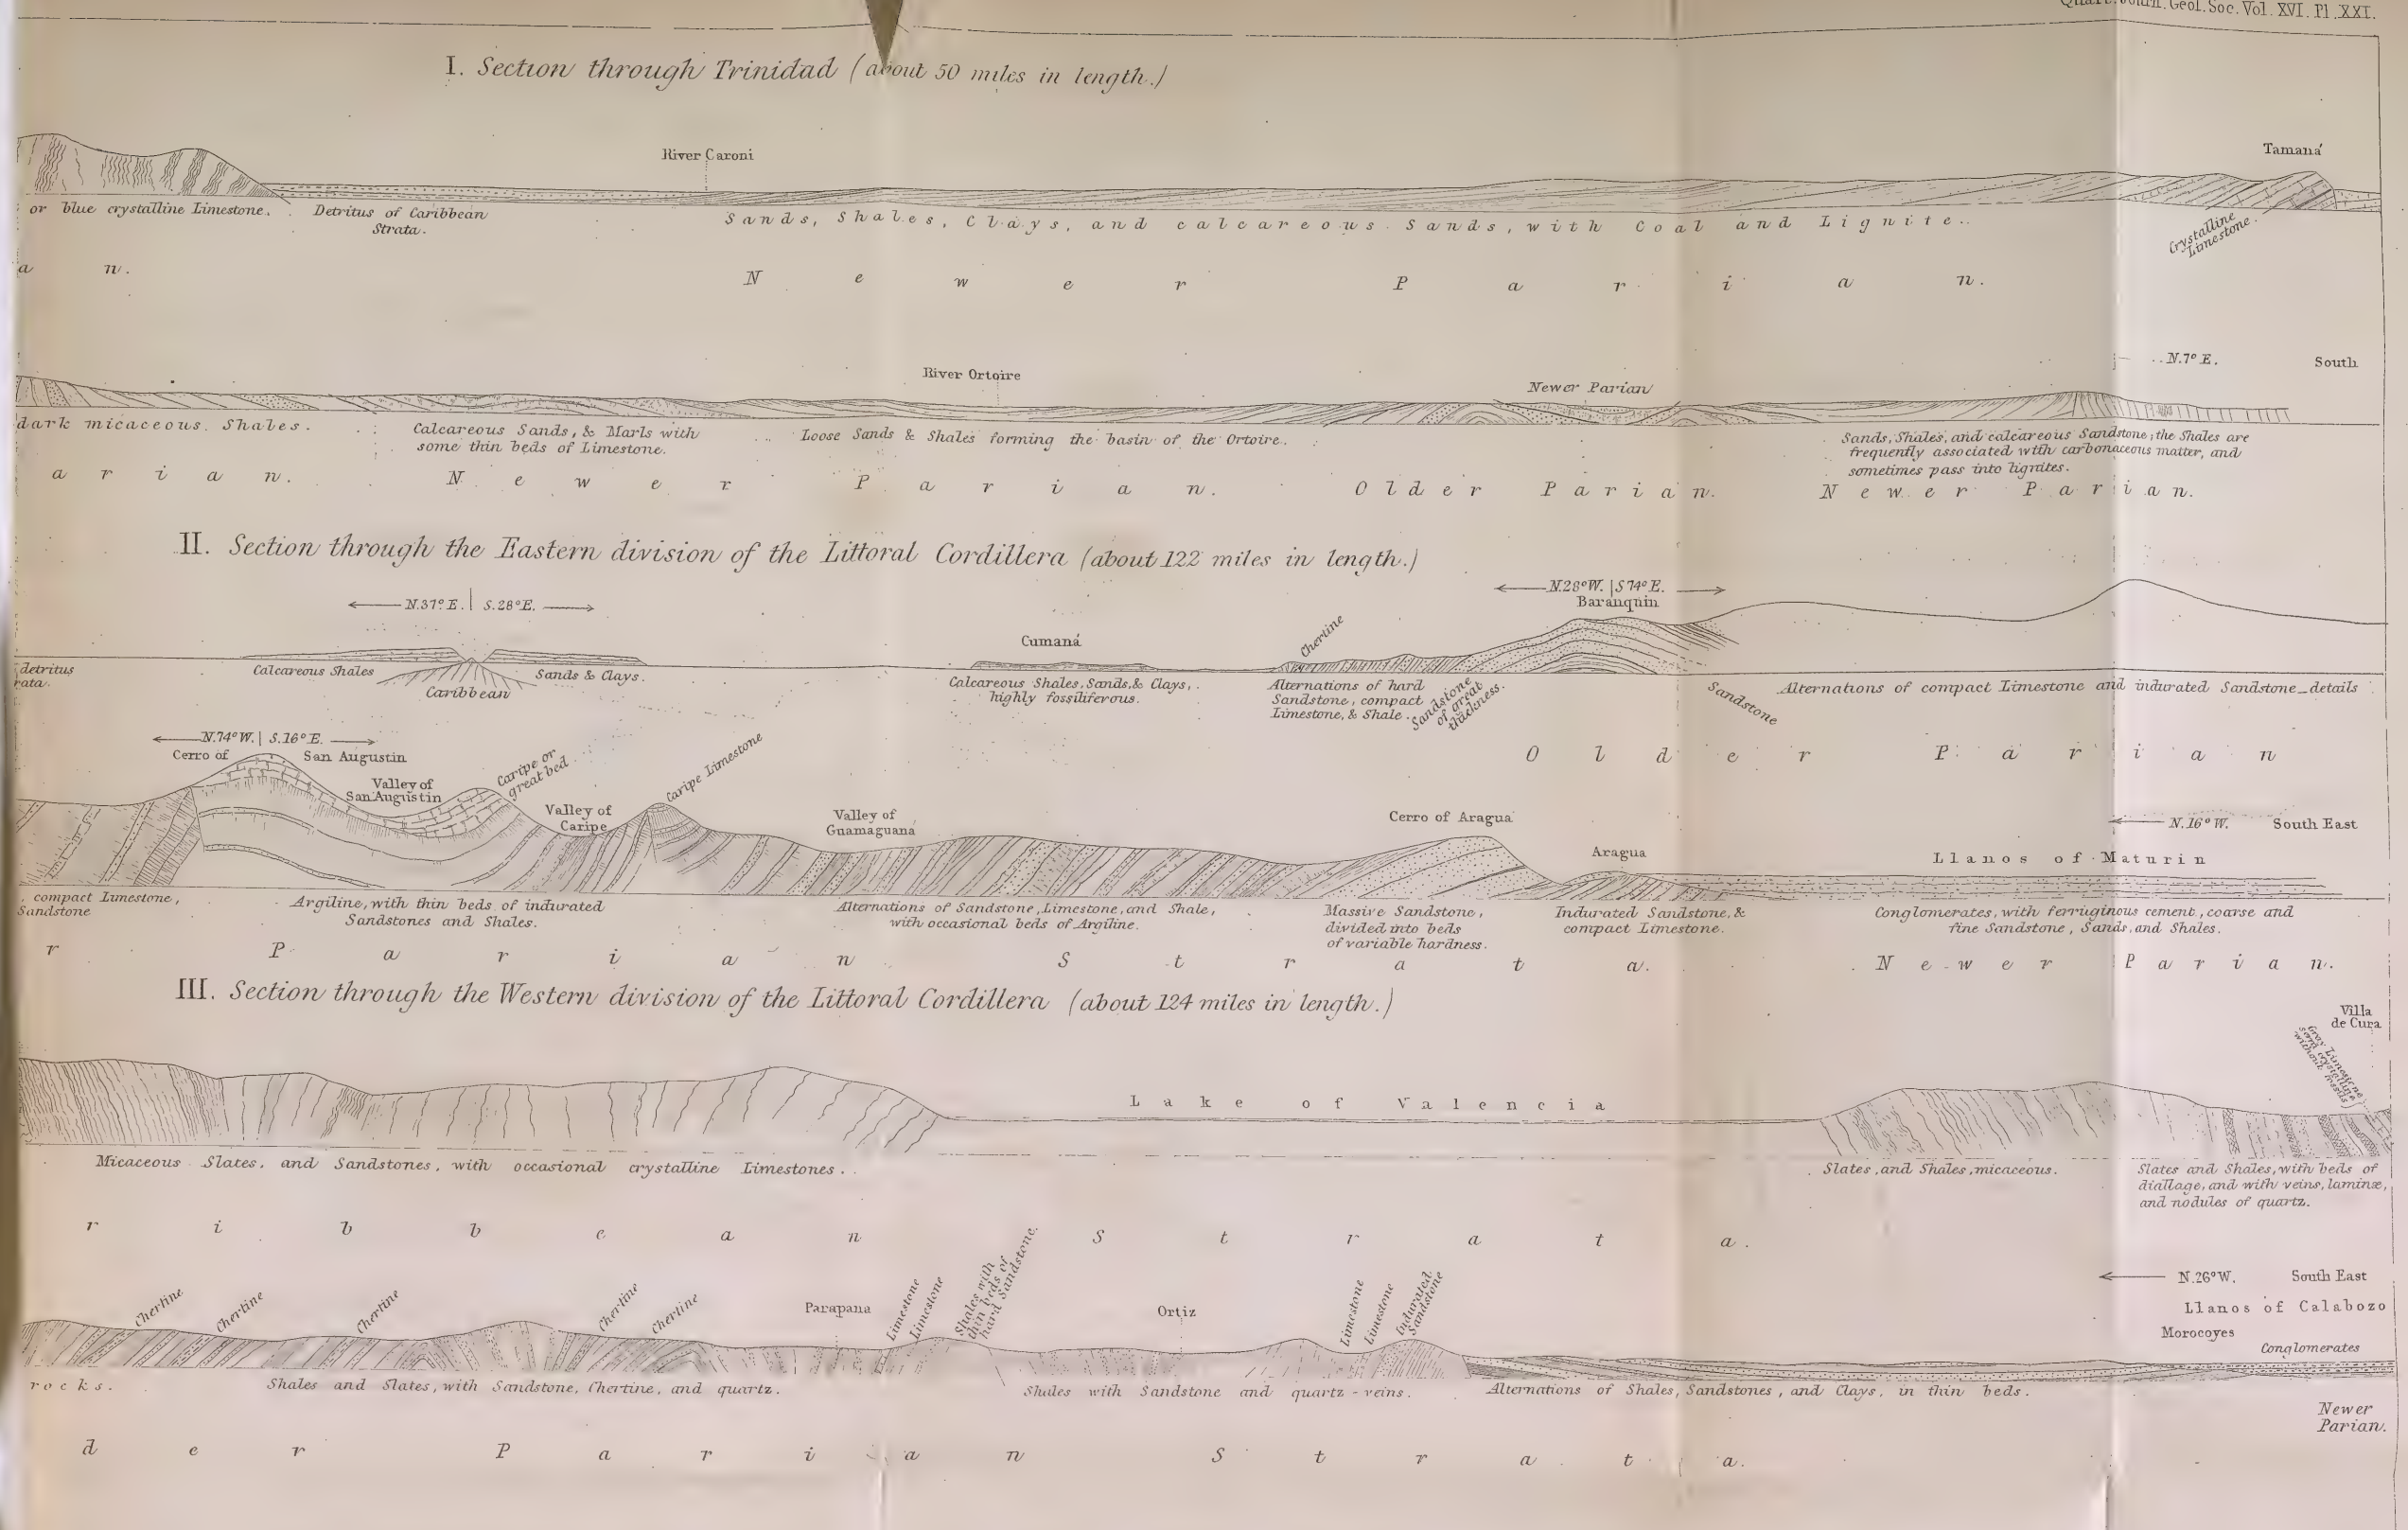 Quart. Journ. Geol. Soc. Vol. XVI. Pl. XXI.
I. Section through Trinidad (about 50 miles in length.)
River Caroni
Tamaná
or blue crystalline Limestone.
Detritus of Caribbean
Strata.
Sands, Shales, Clays, and calcareous Sands, with Coal and Lignite.
Crystalline
Limestone.
an.
Newer Parian.
N. 7° E.
South
River Ortoire
Newer Parian
dark micaceous Shales.
Calcareous Sands, & Marls with
some thin beds of Limestone.
Loose Sands & Shales forming the basin of the Ortoire.
Sands, Shales, and calcareous Sandstone; the Shales are
frequently associated with carbonaceous matter, and
sometimes pass into lignites.
arian.
Newer Parian.
Older Parian.
Newer Parian.
II. Section through the Eastern division of the Littoral Cordillera (about 122 miles in length.)
N. 37° E. | S. 28° E.
N. 28° W. | S 74° E.
Baranquin
Cumaná
Chertine
detritus
rata.
Calcareous Shales
Caribbean
Sands & Clays.
Calcareous Shales, Sands, & Clays,
highly fossiliferous.
Alternations of hard
Sandstone, compact
Limestone, & Shale.
Sandstone
of great
thickness.
Sandstone
Alternations of compact Limestone and indurated Sandstone_details
Older Parian
N. 74° W. | S. 16° E.
Cerro of San Augustin
Valley of
San Augustin
Caripe or
great bed
Valley of
Caripe
Caripe Limestone
Valley of
Guamaguana
Cerro of Aragua
Aragua
N. 16° W.
South East
Llanos of Maturin
compact Limestone,
Sandstone
Argiline, with thin beds of indurated
Sandstones and Shales.
Alternations of Sandstone, Limestone, and Shale,
with occasional beds of Argiline.
Massive Sandstone,
divided into beds
of variable hardness.
Indurated Sandstone, &
compact Limestone.
Conglomerates, with ferruginous cement, coarse and
fine Sandstone, Sands, and Shales.
r Parian Strata.
Newer Parian.
III. Section through the Western division of the Littoral Cordillera (about 124 miles in length.)
Villa
de Cura
Lake of Valencia
Micaceous Slates, and Sandstones, with occasional crystalline Limestones.
Slates, and Shales, micaceous.
Slates and Shales, with beds of
diallage, and with veins, laminæ,
and nodules of quartz.
ribbean Strata.
N. 26° W.
South East
Llanos of Calabozo
Morocoyes
Conglomerates
Chertine
Chertine
Chertine
Chertine
Chertine
Parapana
Limestone
Limestone
Shales with
thin beds of
hard Sandstone.
Ortiz
Limestone
Limestone
Indurated
Sandstone
rocks.
Shales and Slates, with Sandstone, Chertine, and quartz.
Shales with Sandstone and quartz-veins.
Alternations of Shales, Sandstones, and Clays, in thin beds.
Newer
Parian.
der Parian Strata.